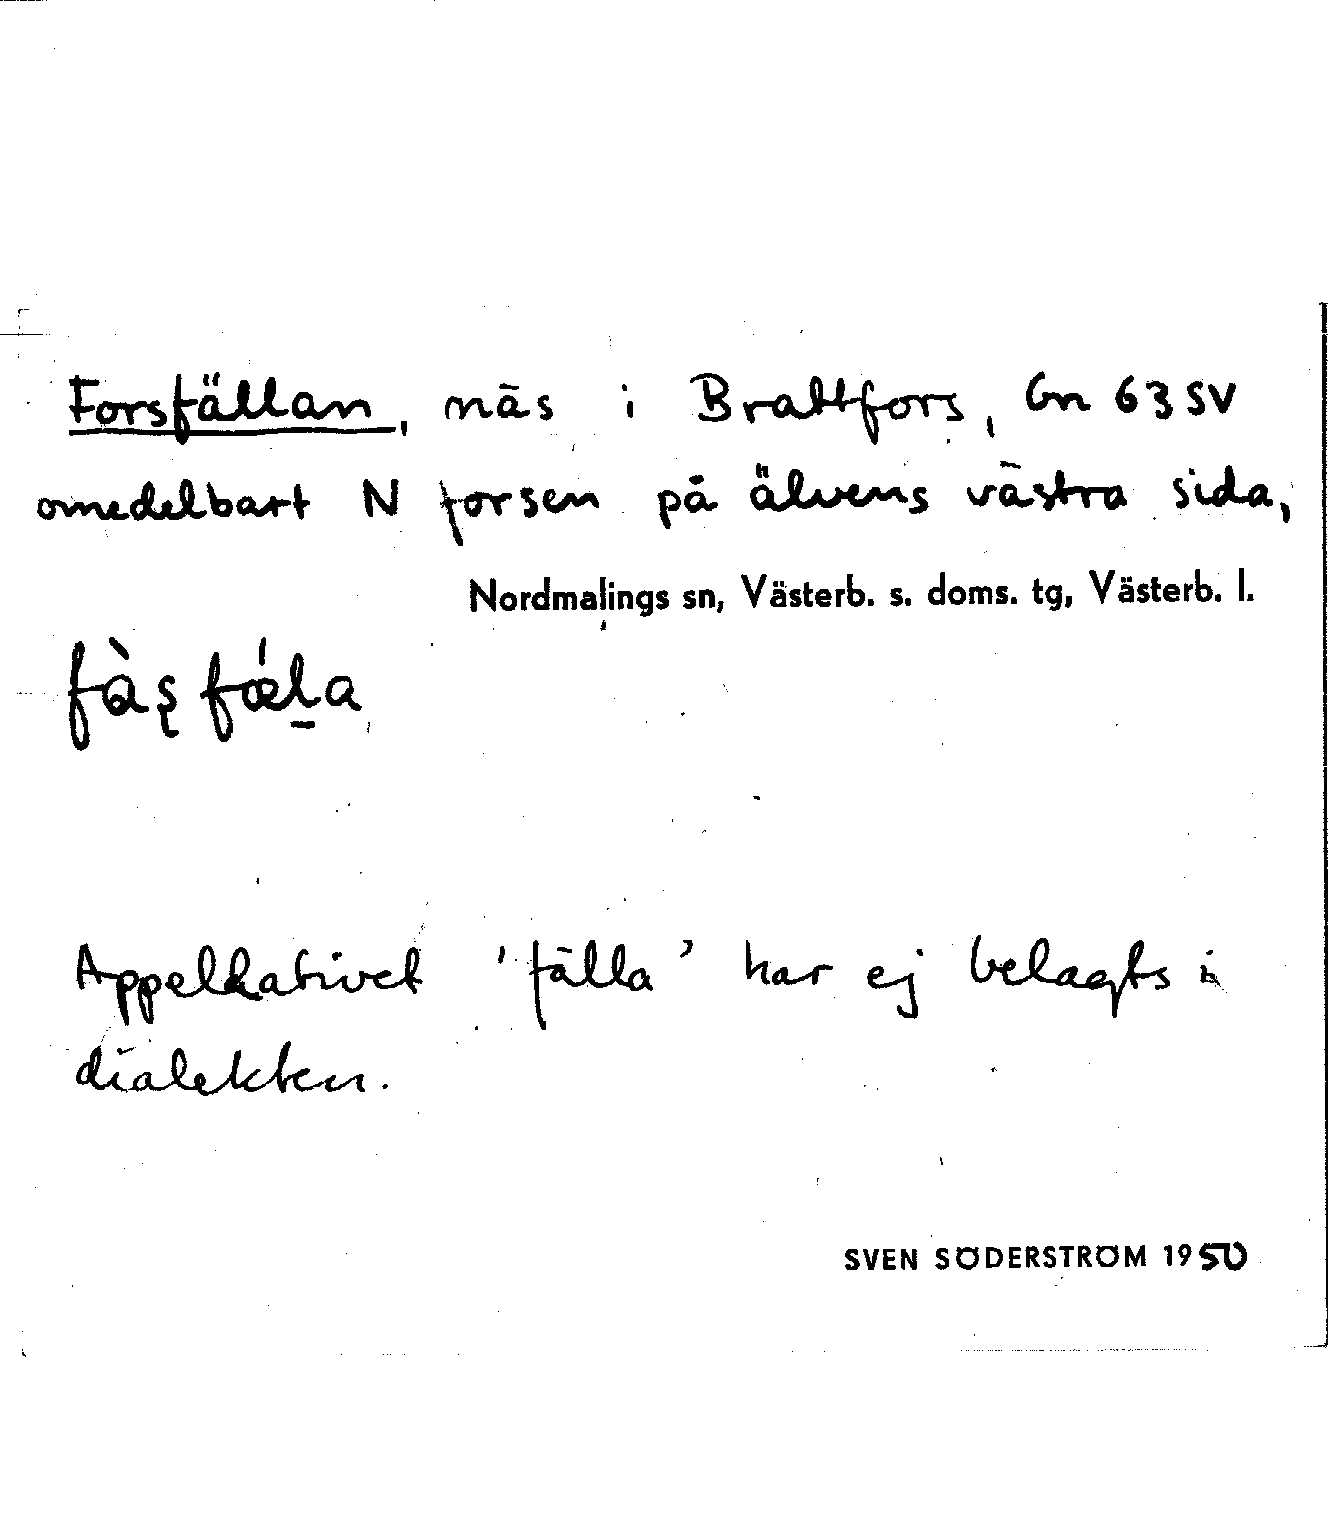 Forsfällan, näs i Brattfors, Gn 63 SV
omedelbart N forsen på älvens västra sida,
Nordmalings sn, Västerb. s. doms. tg, Västerb. l.
fàʂfǽl̠a
Appellativet 'fälla' har ej belagts i
dialekten.
SVEN SÖDERSTRÖM 1950